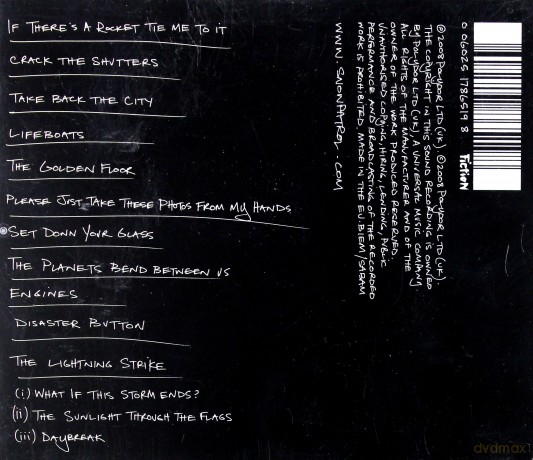 If There's A Rocket Tie Me To It
Crack The Shutters
Take Back The City
Lifeboats
The Golden Floor
Please Just Take These Photos From My Hands
Set Down Your Glass
The Planets Bend Between Us
Engines
Disaster Button
The Lightning Strike
(i) What If This Storm Ends?
(ii) The Sunlight Through The Flags
(iii) Daybreak
0 06025 1786519 8
Fiction
℗2008 Polydor Ltd (UK). ©2008 Polydor Ltd (UK).
The copyright in this sound recording is owned
by Polydor Ltd (UK), a Universal Music Company
All rights of the manufacturer and of the
owner of the work produced reserved.
Unauthorised copying, hiring, lending, public
performance and broadcasting of the recorded
work is prohibited. Made in the EU. BIEM/SABAM
www.snowpatrol.com
dvdmax